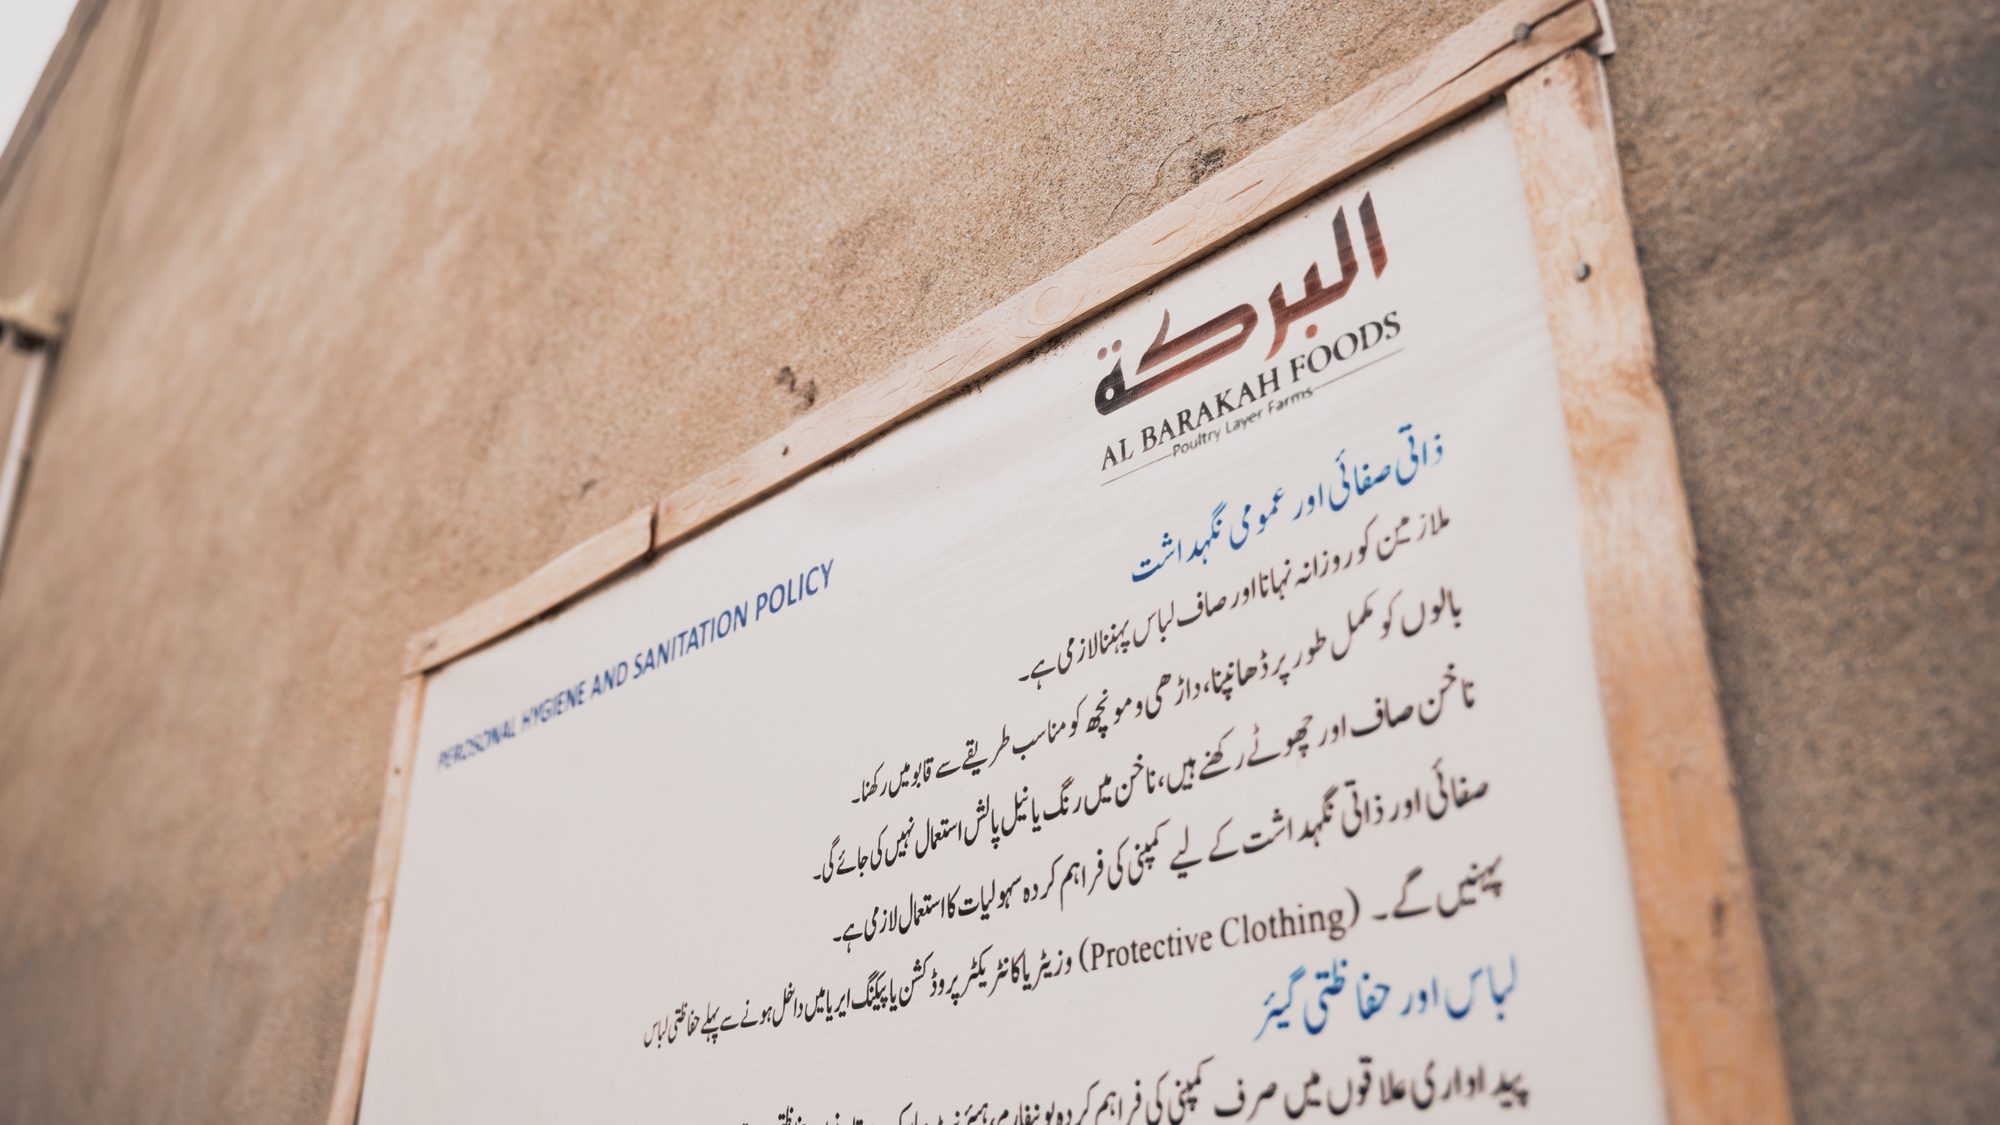 البركة
AL BARAKAH FOODS
Poultry Layer Farms
PEROSONAL HYGIENE AND SANITATION POLICY
ذاتی صفائی اور عمومی نگہداشت
ملازمین کو روزانہ نہانا اور صاف لباس پہننا لازمی ہے۔
بالوں کو مکمل طور پر ڈھانپنا، داڑھی و مونچھ کو مناسب طریقے سے قابو میں رکھنا۔
ناخن صاف اور چھوٹے رکھنے ہیں، ناخن میں رنگ یا نیل پالش استعمال نہیں کی جائے گی۔
صفائی اور ذاتی نگہداشت کے لیے کمپنی کی فراہم کردہ سہولیات کا استعمال لازمی ہے۔
پہنیں گے۔ (Protective Clothing) وزیٹر یا کانٹریکٹر پروڈکشن یا پیکنگ ایریا میں داخل ہونے سے پہلے حفاظتی لباس
لباس اور حفاظتی گیئر
پیداواری علاقوں میں صرف کمپنی کی فراہم کردہ یونیفارم،